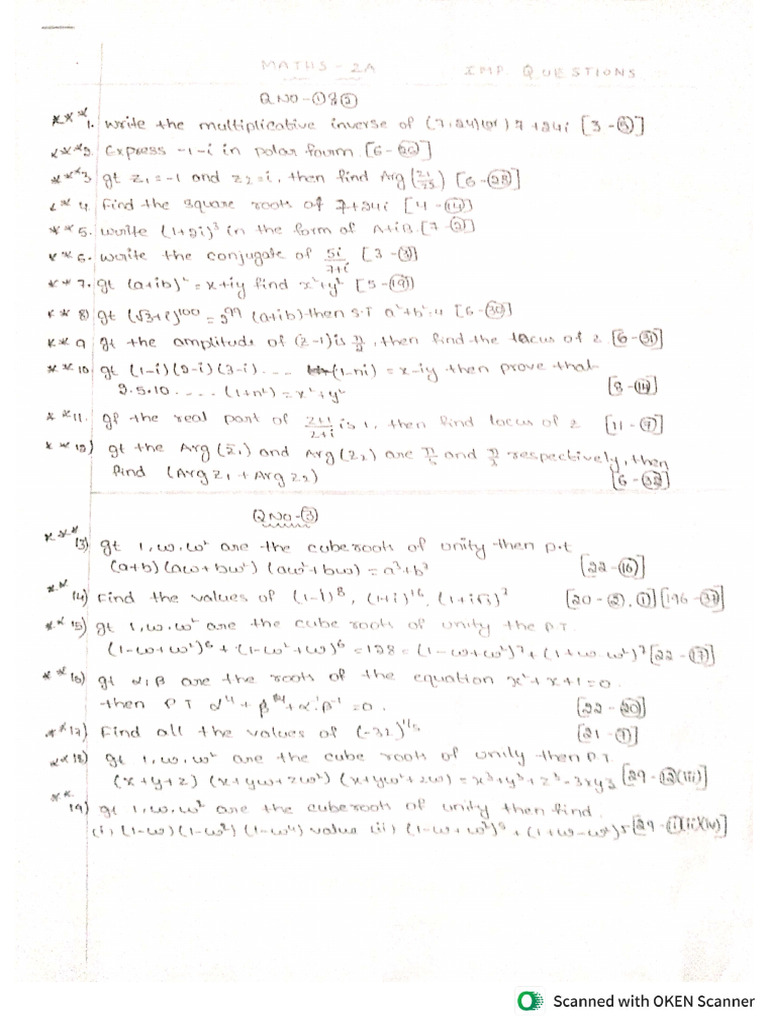 MATHS - 2A IMP. QUESTIONS
QNO-①&②
*** 1. Write the multiplicative inverse of (7,24)(or) 7+24i [3-⑤]
***2. Express -1-i in polar form. [6-㉖]
***3 If z₁=-1 and z₂=i, then find Arg(z₁/z₂) [6-㉘]
** 4. Find the square roots of 7+24i [4-⑭]
** 5. write (1+2i)³ in the form of A+iB. [7-②]
** 6. write the conjugate of 5i/7+i [3-③]
** 7. If (a+ib)² = x+iy find x²+y² [5-⑲]
** 8) If (√3+i)¹⁰⁰ = 2⁹⁹ (a+ib) then S.T a²+b²=4 [6-㉚]
** 9 If the amplitude of (z-1) is π/2, then find the locus of z [6-㉛]
** 10. If (1-i)(2-i)(3-i).... (1-ni) = x-iy then prove that
2.5.10..... (1+n²) = x²+y² [8-⑭]
** 11. If the real part of z+1/z+i is 1, then find locus of z [11-⑦]
** 12) If the Arg(z̄₁) and Arg(z₂) are π/5 and π/3 respectively, then
find (Arg z₁ + Arg z₂) [6-㉜]
QNO-③
*** 13) If 1, ω, ω² are the cube roots of unity then p.t
(a+b)(aω+bω²)(aω²+bω) = a³+b³ [22-⑯]
** 14) Find the values of (1-i)⁸, (1+i)¹⁶, (1+i√3)³ [20-②,①][196-㊲]
** 15) If 1, ω, ω² are the cube roots of unity the P.T.
(1-ω+ω²)⁶ + (1-ω²+ω)⁶ = 128 = (1-ω+ω²)⁷ + (1+ω-ω²)⁷ [22-⑰]
** 16) If α, β are the roots of the equation x²+x+1=0.
then P.T α⁴+β⁴+α⁻¹β⁻¹=0. [22-⑳]
** 17) Find all the values of (-32)^1/5 [21-⑦]
** 18) If 1, ω, ω² are the cube roots of unity then P.T.
(x+y+z)(x+yω+zω²)(x+yω²+zω) = x³+y³+z³-3xyz [29-⑫(iii)]
** 19) If 1, ω, ω² are the cube roots of unity then find.
(i) (1-ω)(1-ω²)(1-ω⁴) value (ii) (1-ω+ω²)⁵ + (1+ω-ω²)⁵ [29-①(ii)(iv)]
Scanned with OKEN Scanner